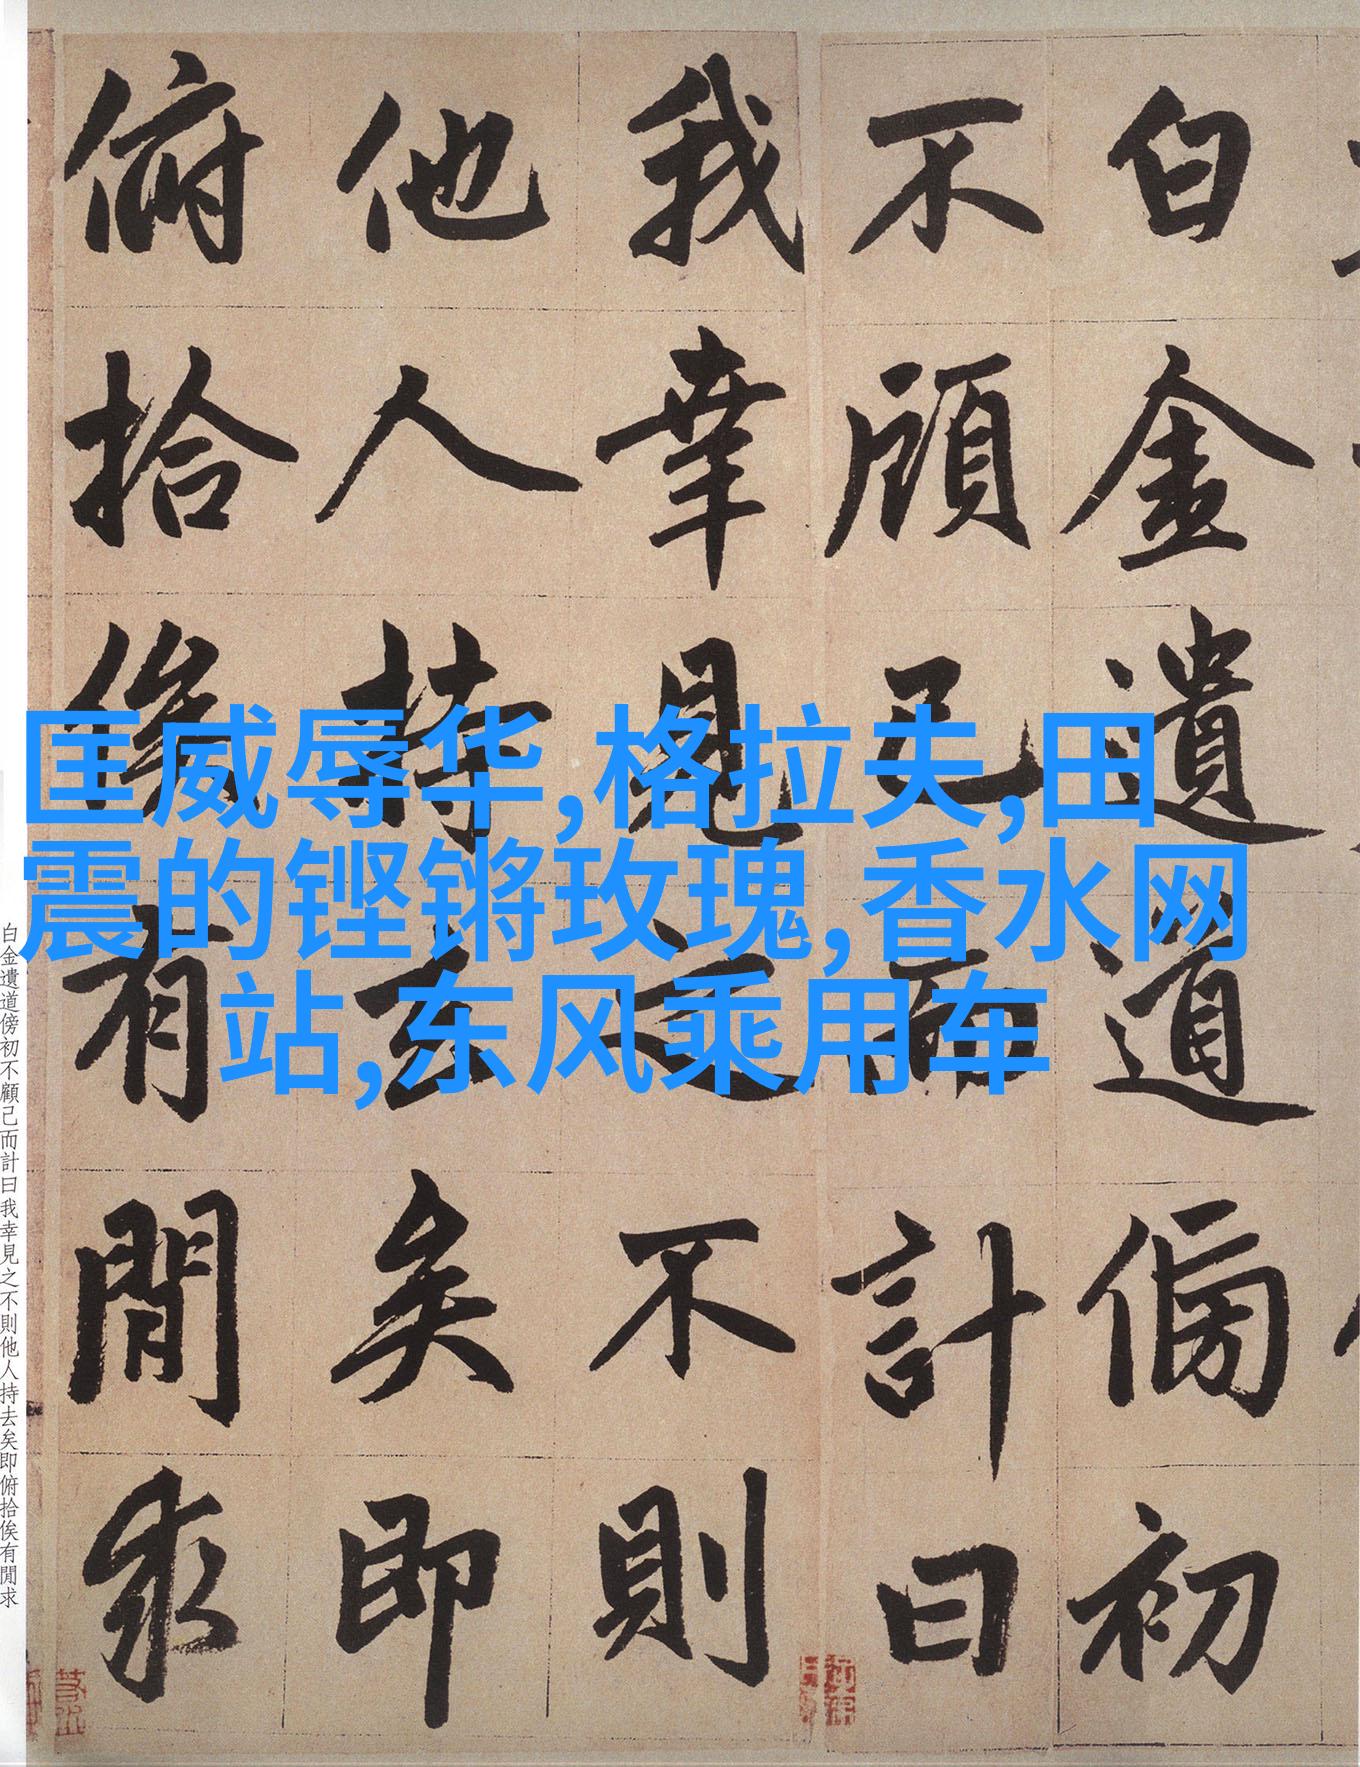 白金遺道傍初
不顧己而計曰
我幸見之不則
他人持去矣即
俯拾俟有閒求
匡威辱华,格拉夫,田
震的铿锵玫瑰,香水网
站,东风乘用车
白金遺道傍初不顧己而計曰我幸見之不則他人持去矣即俯拾俟有閒求